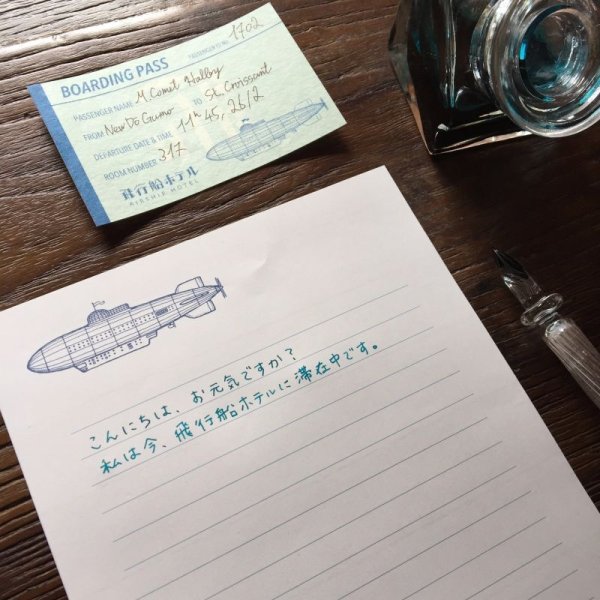 BOARDING PASS
PASSENGER ID NO. 1702
PASSENGER NAME M. Comet Hallby
FROM New Do Gumo TO St. Croissant
DEPARTURE DATE & TIME 11h 45, 26/2
ROOM NUMBER 317
飛行船ホテル
AIRSHIP HOTEL
こんにちは、お元気ですか?
私は今、飛行船ホテルに滞在中です。